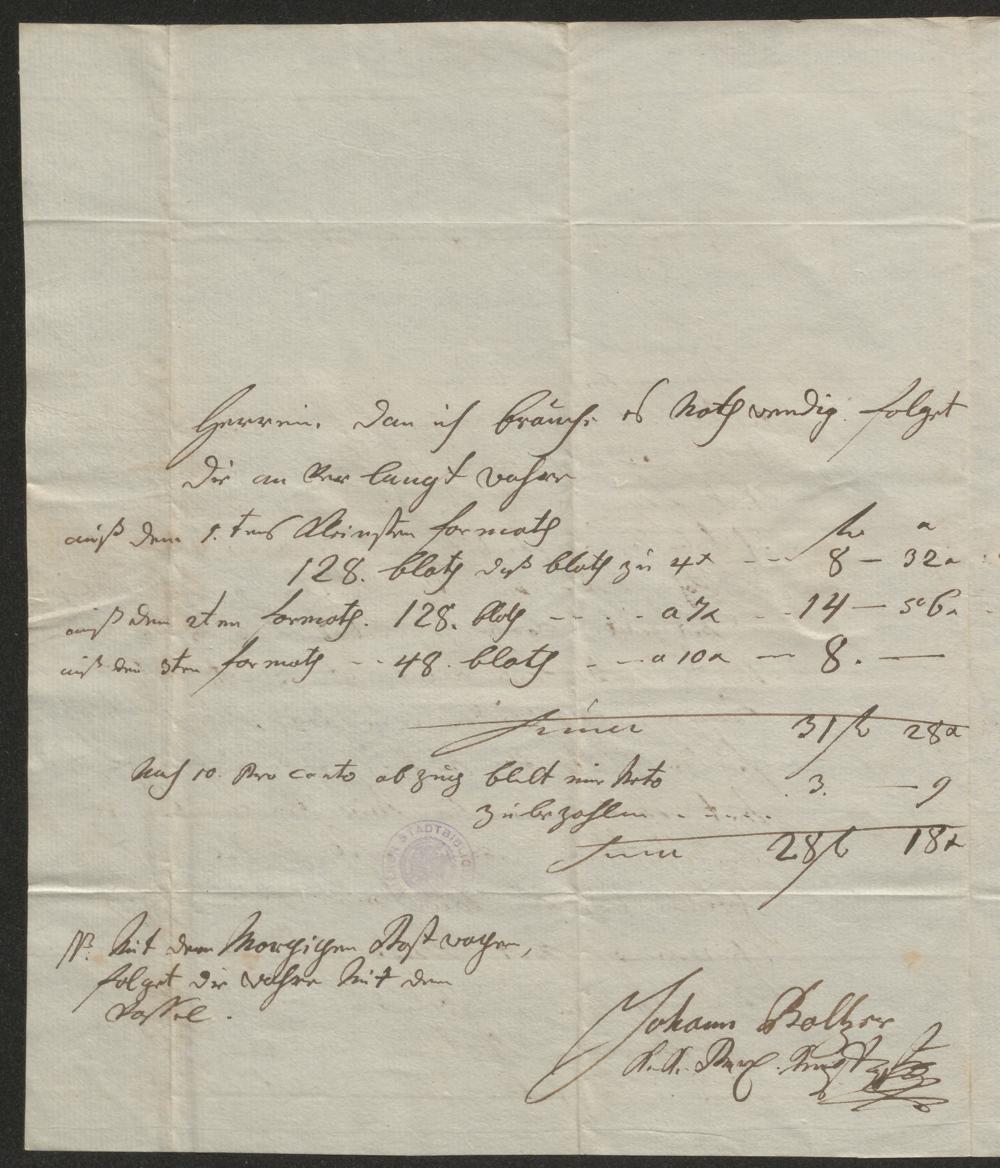 Herrein. Dan ich brauche es Nothwendig. folget
die an Ver langt wahre
auß dem 1.tens kleinsten formath fl x
128. blath daß blath zu 4x - - 8 - 32x
auß dem 2ten formath. 128. blath - - - a 7x - 14 - 56x
auß den 3ten formath - - 48. blath - - a 10x - 8. -
Suma 31 fl 28x
Nach 10. Pro cento abzug bleibt mir Neto 3. - 9
zu bezahlen - - - -
Suma 28 fl 18x
NB. Mit dem Morgigen Post wagen,
folget die wahre Mit dem
Johann Balzer
K. K. Privil.
STADTBIBLIO